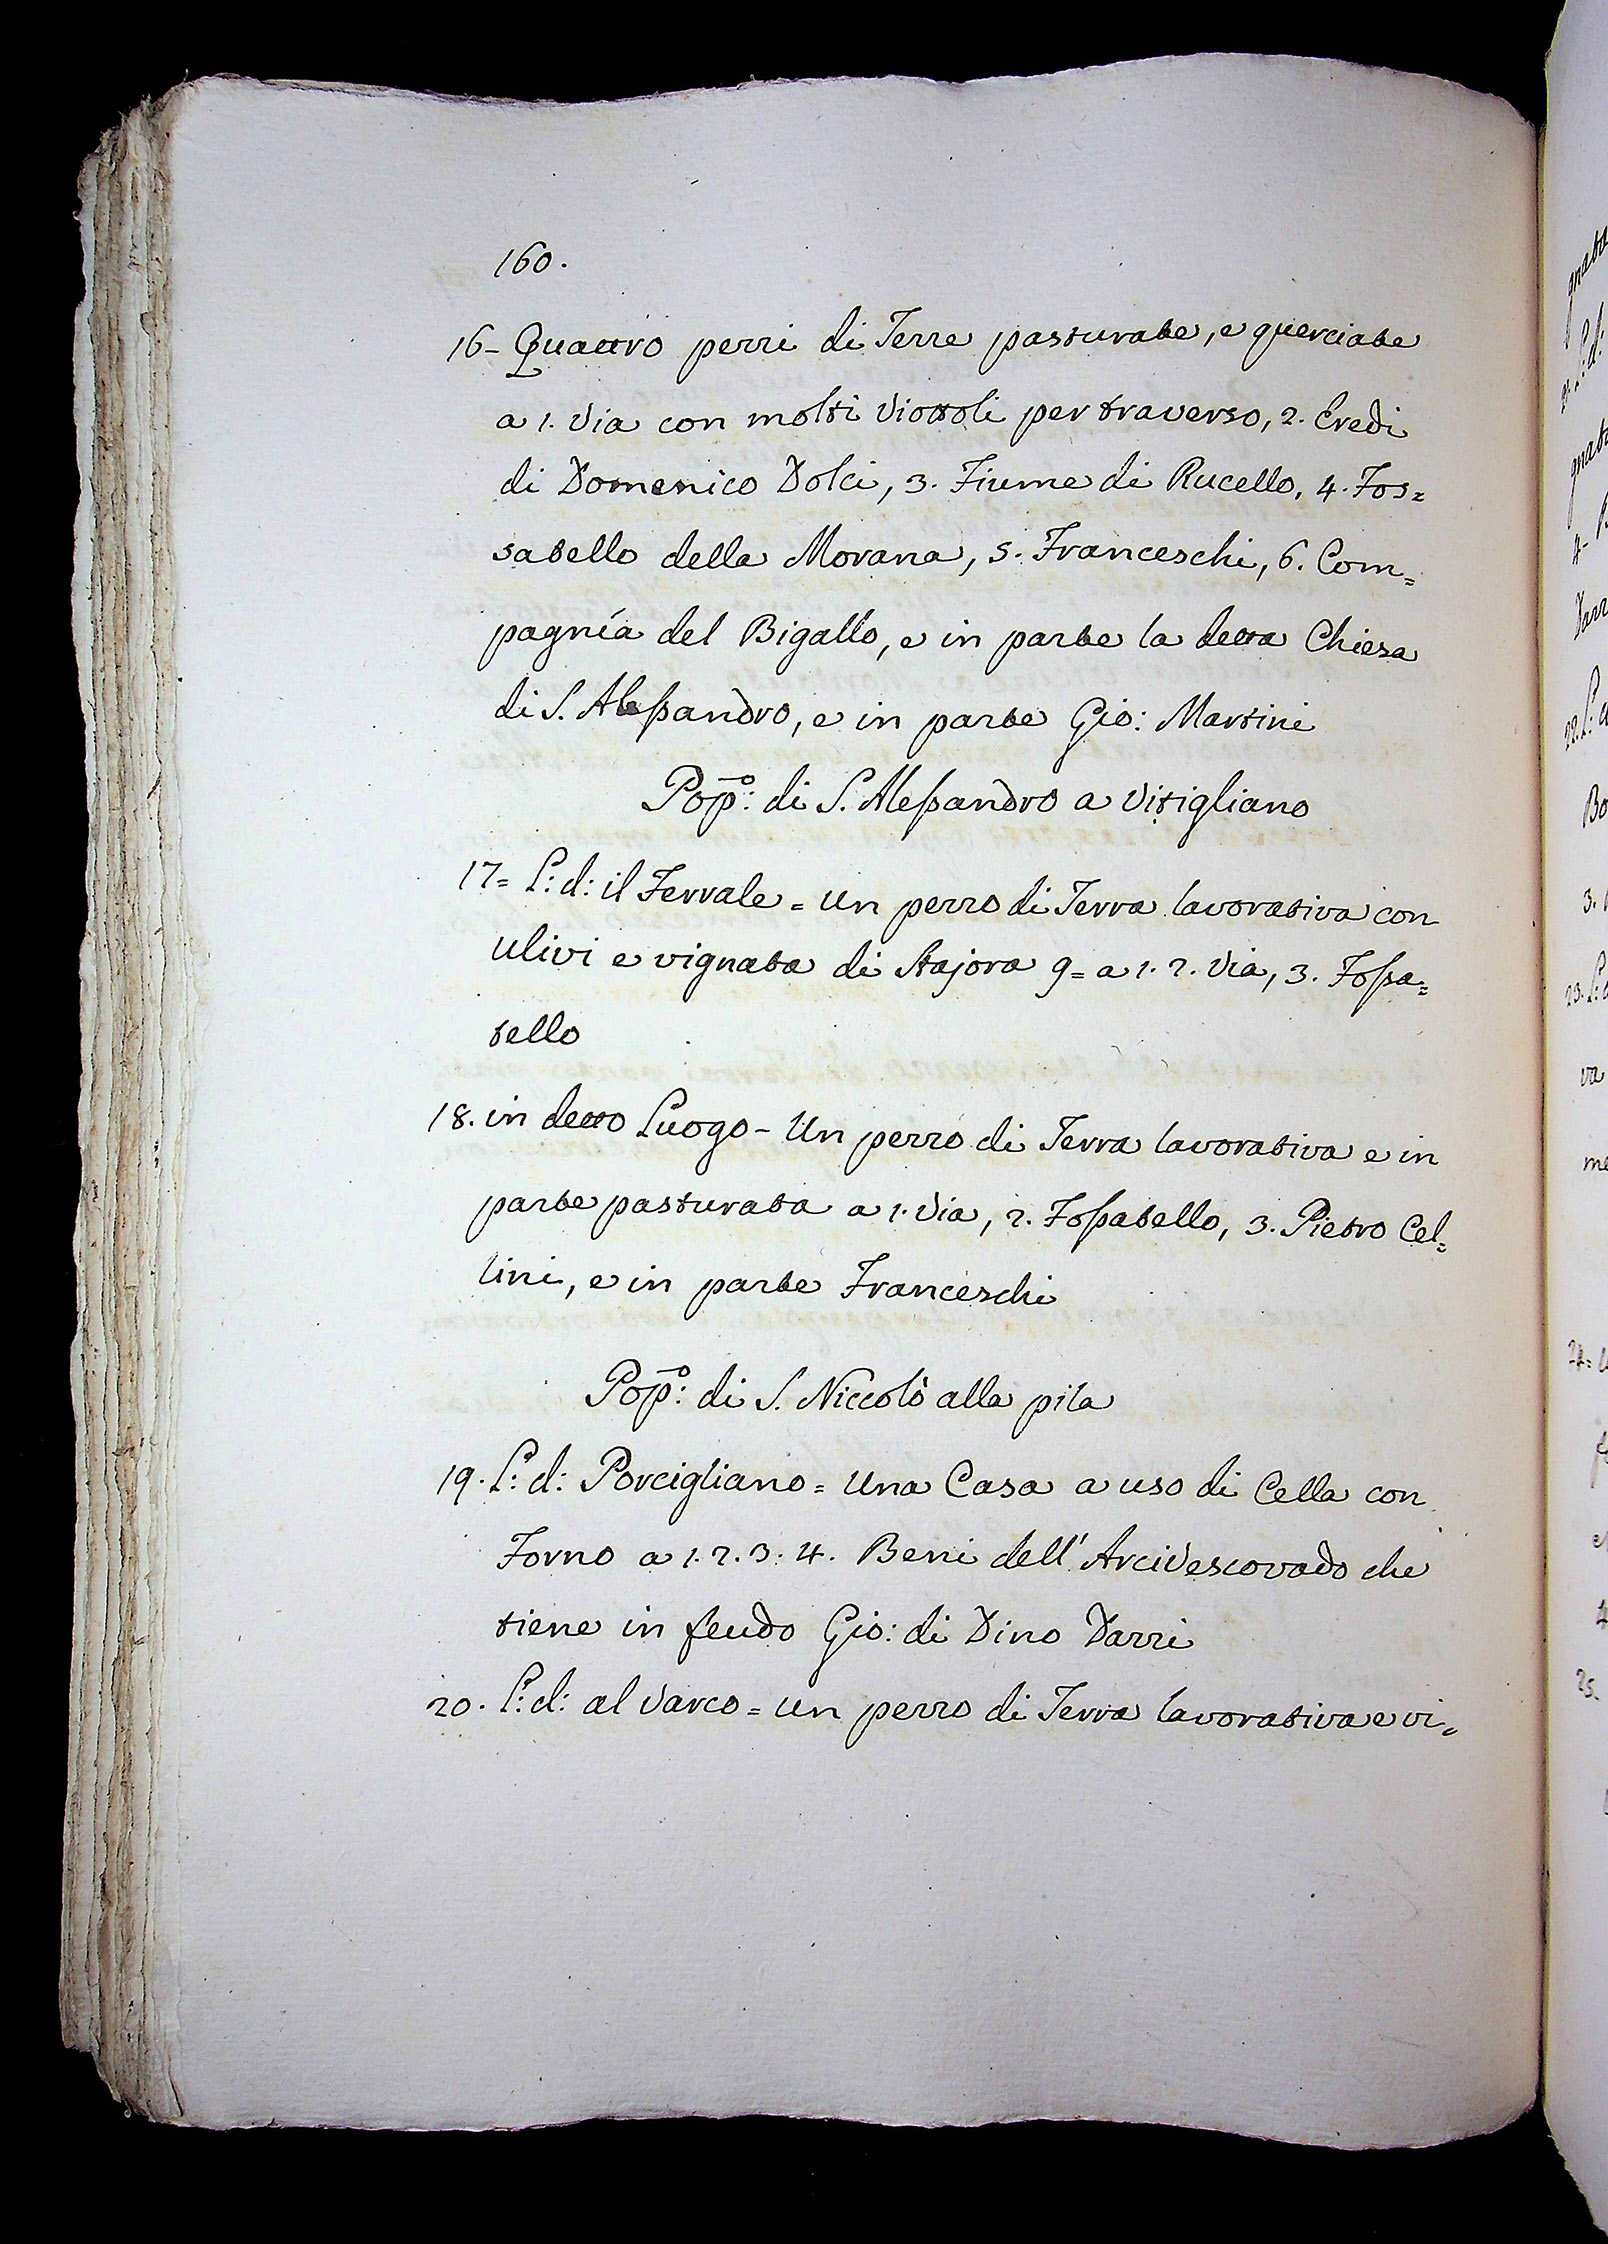 160.
16- Quattro pezzi di Terre pasturate, e querciate
a 1. Via con molti Viottoli per traverso, 2. Eredi
di Domenico Dolci, 3. Fiume di Rucello, 4. Fos=
satello della Morana, 5. Franceschi, 6. Com=
pagnía del Bigallo, e in parte la detta Chiesa
di S. Alessandro, e in parte Gio: Martini
Pop:º di S. Alessandro a Vitigliano
17= L: d: il Ferrale = Un pezzo di Terra lavorativa con
Ulivi e vignata di Stajora 9= a 1. 2. Via, 3. Fossa=
tello
18. in detto Luogo - Un pezzo di Terra lavorativa e in
parte pasturata a 1. Via, 2. Fossatello, 3. Pietro Cel=
lini, e in parte Franceschi
Pop:º di S. Niccolò alla pila
19. L: d: Porcigliano = Una Casa a uso di Cella con
Forno a 1. 2. 3. 4. Beni dell' Arcivescovado che
tiene in feudo Gio: di Dino Dazzi
20. L: d: al Varco = Un pezzo di Terra lavorativa e vi=